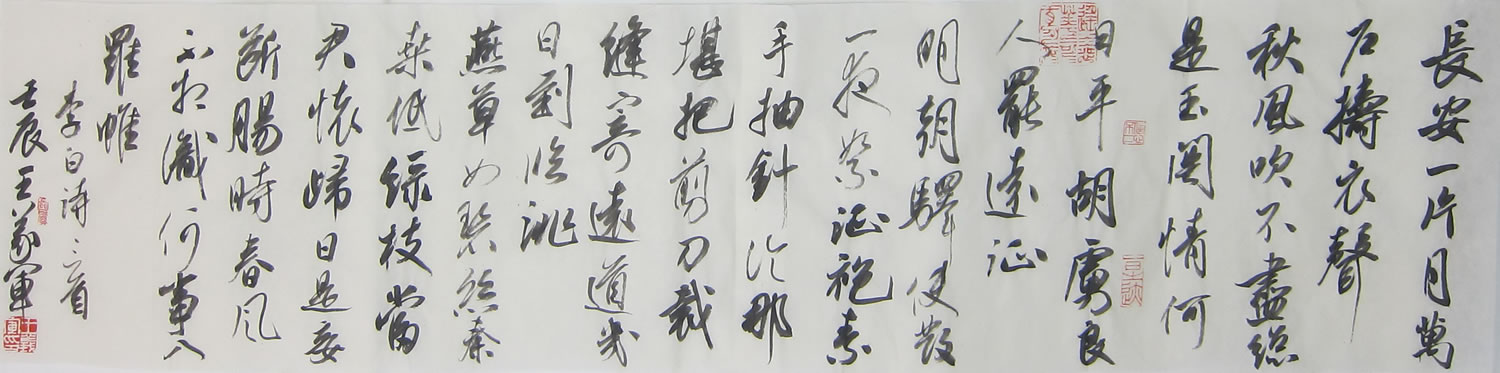 長安一片月萬
石擣衣聲
秋風吹不盡總
是玉関情何
日平胡虜良
人罷遠征
明朝驛使發
一夜絮征袍素
手抽針冷那
堪把剪刀裁
縫寄遠道幾
日到臨洮
燕草如碧絲秦
桑低綠枝當
君懷歸日是妾
斷腸時春風
不相識何事入
羅帷
李白詩三首
壬辰王義軍